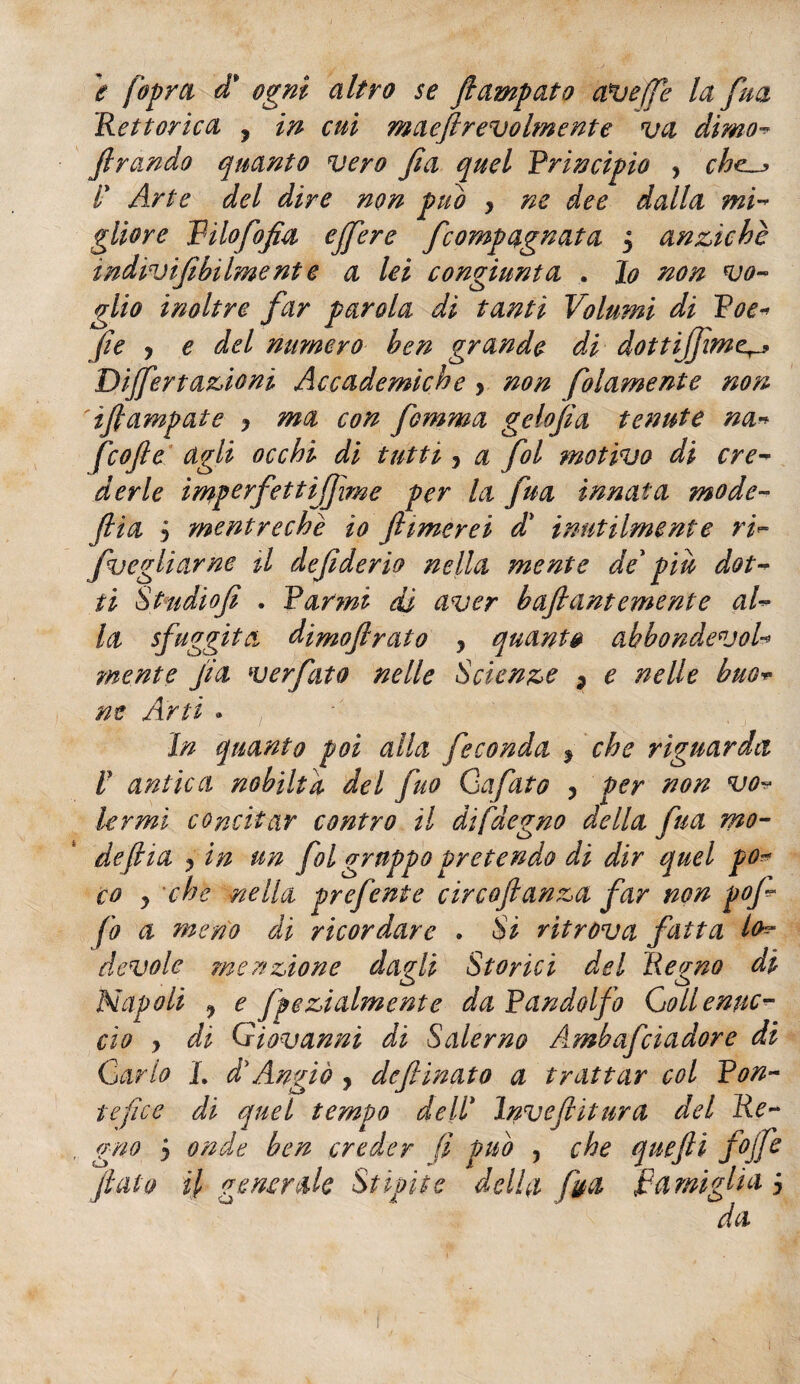 e ſopra d' ogni altro se ſtampato aveſſe la ſua
Rettorica , in cui maeſtrevolmente va dimo-
ſtrando quanto vero ſia quel Principio , che
l' Arte del dire non può , ne dee dalla mi-
gliore Filoſofia eſſere ſcompagnata ; anzichè
indiviſibilmente a lei congiunta . Io non vo-
glio inoltre far parola di tanti Volumi di Poe-
ſie , e del numero ben grande di dottiſſime
Diſſertazioni Accademiche , non ſolamente non
iſtampate , ma con ſomma geloſia tenute na-
ſcoſte agli occhi di tutti , a ſol motivo di cre-
derle imperfettiſſime per la ſua innata mode-
ſtia ; mentrechè io ſtimerei d' inutilmente ri-
ſvegliarne il deſiderio nella mente de' più dot-
ti Studioſi . Parmi di aver baſtantemente al-
la sfuggita dimoſtrato , quanto abbondevol-
mente ſia verſato nelle Scienze , e nelle buo-
ne Arti .
In quanto poi alla ſeconda , che riguarda
l' antica nobiltà del ſuo Caſato , per non vo-
lermi concitar contro il diſdegno della ſua mo-
deſtia , in un ſol gruppo pretendo di dir quel po-
co , che nella preſente circoſtanza far non poſ-
ſo a meno di ricordare . Si ritrova fatta lo-
devole menzione dagli Storici del Regno di
Napoli , e ſpezialmente da Pandolfo Collenuc-
cio , di Giovanni di Salerno Ambaſciadore di
Carlo I. d' Angiò , deſtinato a trattar col Pon-
tefice di quel tempo dell' Inveſtitura del Re-
gno ; onde ben creder ſi può , che queſti foſſe
ſtato il generale Stipite della ſua Famiglia ;
da